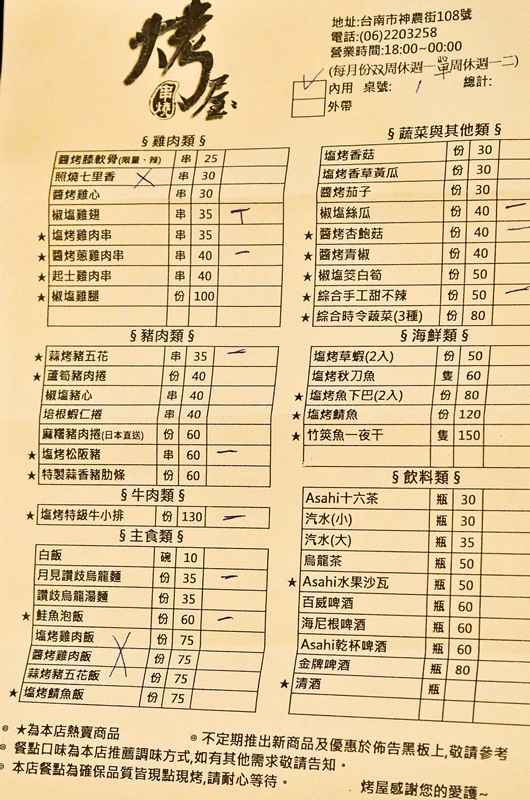 烤屋
串燒
地址:台南市神農街108號
電話:(06)2203258
營業時間:18:00~00:00
(每月份双周休週一單周休週一二)
內用 桌號: 1 總計:
外帶
§雞肉類§
醬烤膝軟骨(限量、辣) 串 25
照燒七里香 串 30
醬烤雞心 串 30
椒塩雞翅 串 35
★塩烤雞肉串 串 35
★醬烤蔥雞肉串 串 40
★起士雞肉串 串 40
★椒塩雞腿 份 100
§豬肉類§
★蒜烤豬五花 串 35
★蘆筍豬肉捲 份 40
椒塩豬心 串 40
培根蝦仁捲 串 40
麻糬豬肉捲(日本直送) 份 60
★塩烤松阪豬 串 60
★特製蒜香豬肋條 份 60
§牛肉類§
★塩烤特級牛小排 份 130
§主食類§
白飯 碗 10
月見讚歧烏龍麵 份 35
讚歧烏龍湯麵 份 35
★鮭魚泡飯 份 60
塩烤雞肉飯 份 75
醬烤雞肉飯 份 75
蒜烤豬五花飯 份 75
★塩烤鯖魚飯 份 75
§蔬菜與其他類§
塩烤香菇 份 30
塩烤香草黃瓜 份 30
醬烤茄子 份 30
椒塩絲瓜 份 40
★醬烤杏鮑菇 份 40
★醬烤青椒 份 40
★椒塩筊白筍 份 50
★綜合手工甜不辣 份 50
★綜合時令蔬菜(3種) 份 80
§海鮮類§
塩烤草蝦(2入) 份 50
塩烤秋刀魚 隻 60
★塩烤魚下巴(2入) 份 80
★塩烤鯖魚 份 120
★竹筴魚一夜干 隻 150
§飲料類§
Asahi十六茶 瓶 30
汽水(小) 瓶 30
汽水(大) 瓶 35
烏龍茶 瓶 50
★Asahi水果沙瓦 瓶 50
百威啤酒 瓶 60
海尼根啤酒 瓶 60
Asahi乾杯啤酒 瓶 60
金牌啤酒 瓶 80
★清酒 瓶
◎★為本店熱賣商品 ◎不定期推出新商品及優惠於佈告黑板上,敬請參考
◎餐點口味為本店推薦調味方式,如有其他需求敬請告知。
◎本店餐點為確保品質皆現點現烤,請耐心等待。
烤屋感謝您的愛護~